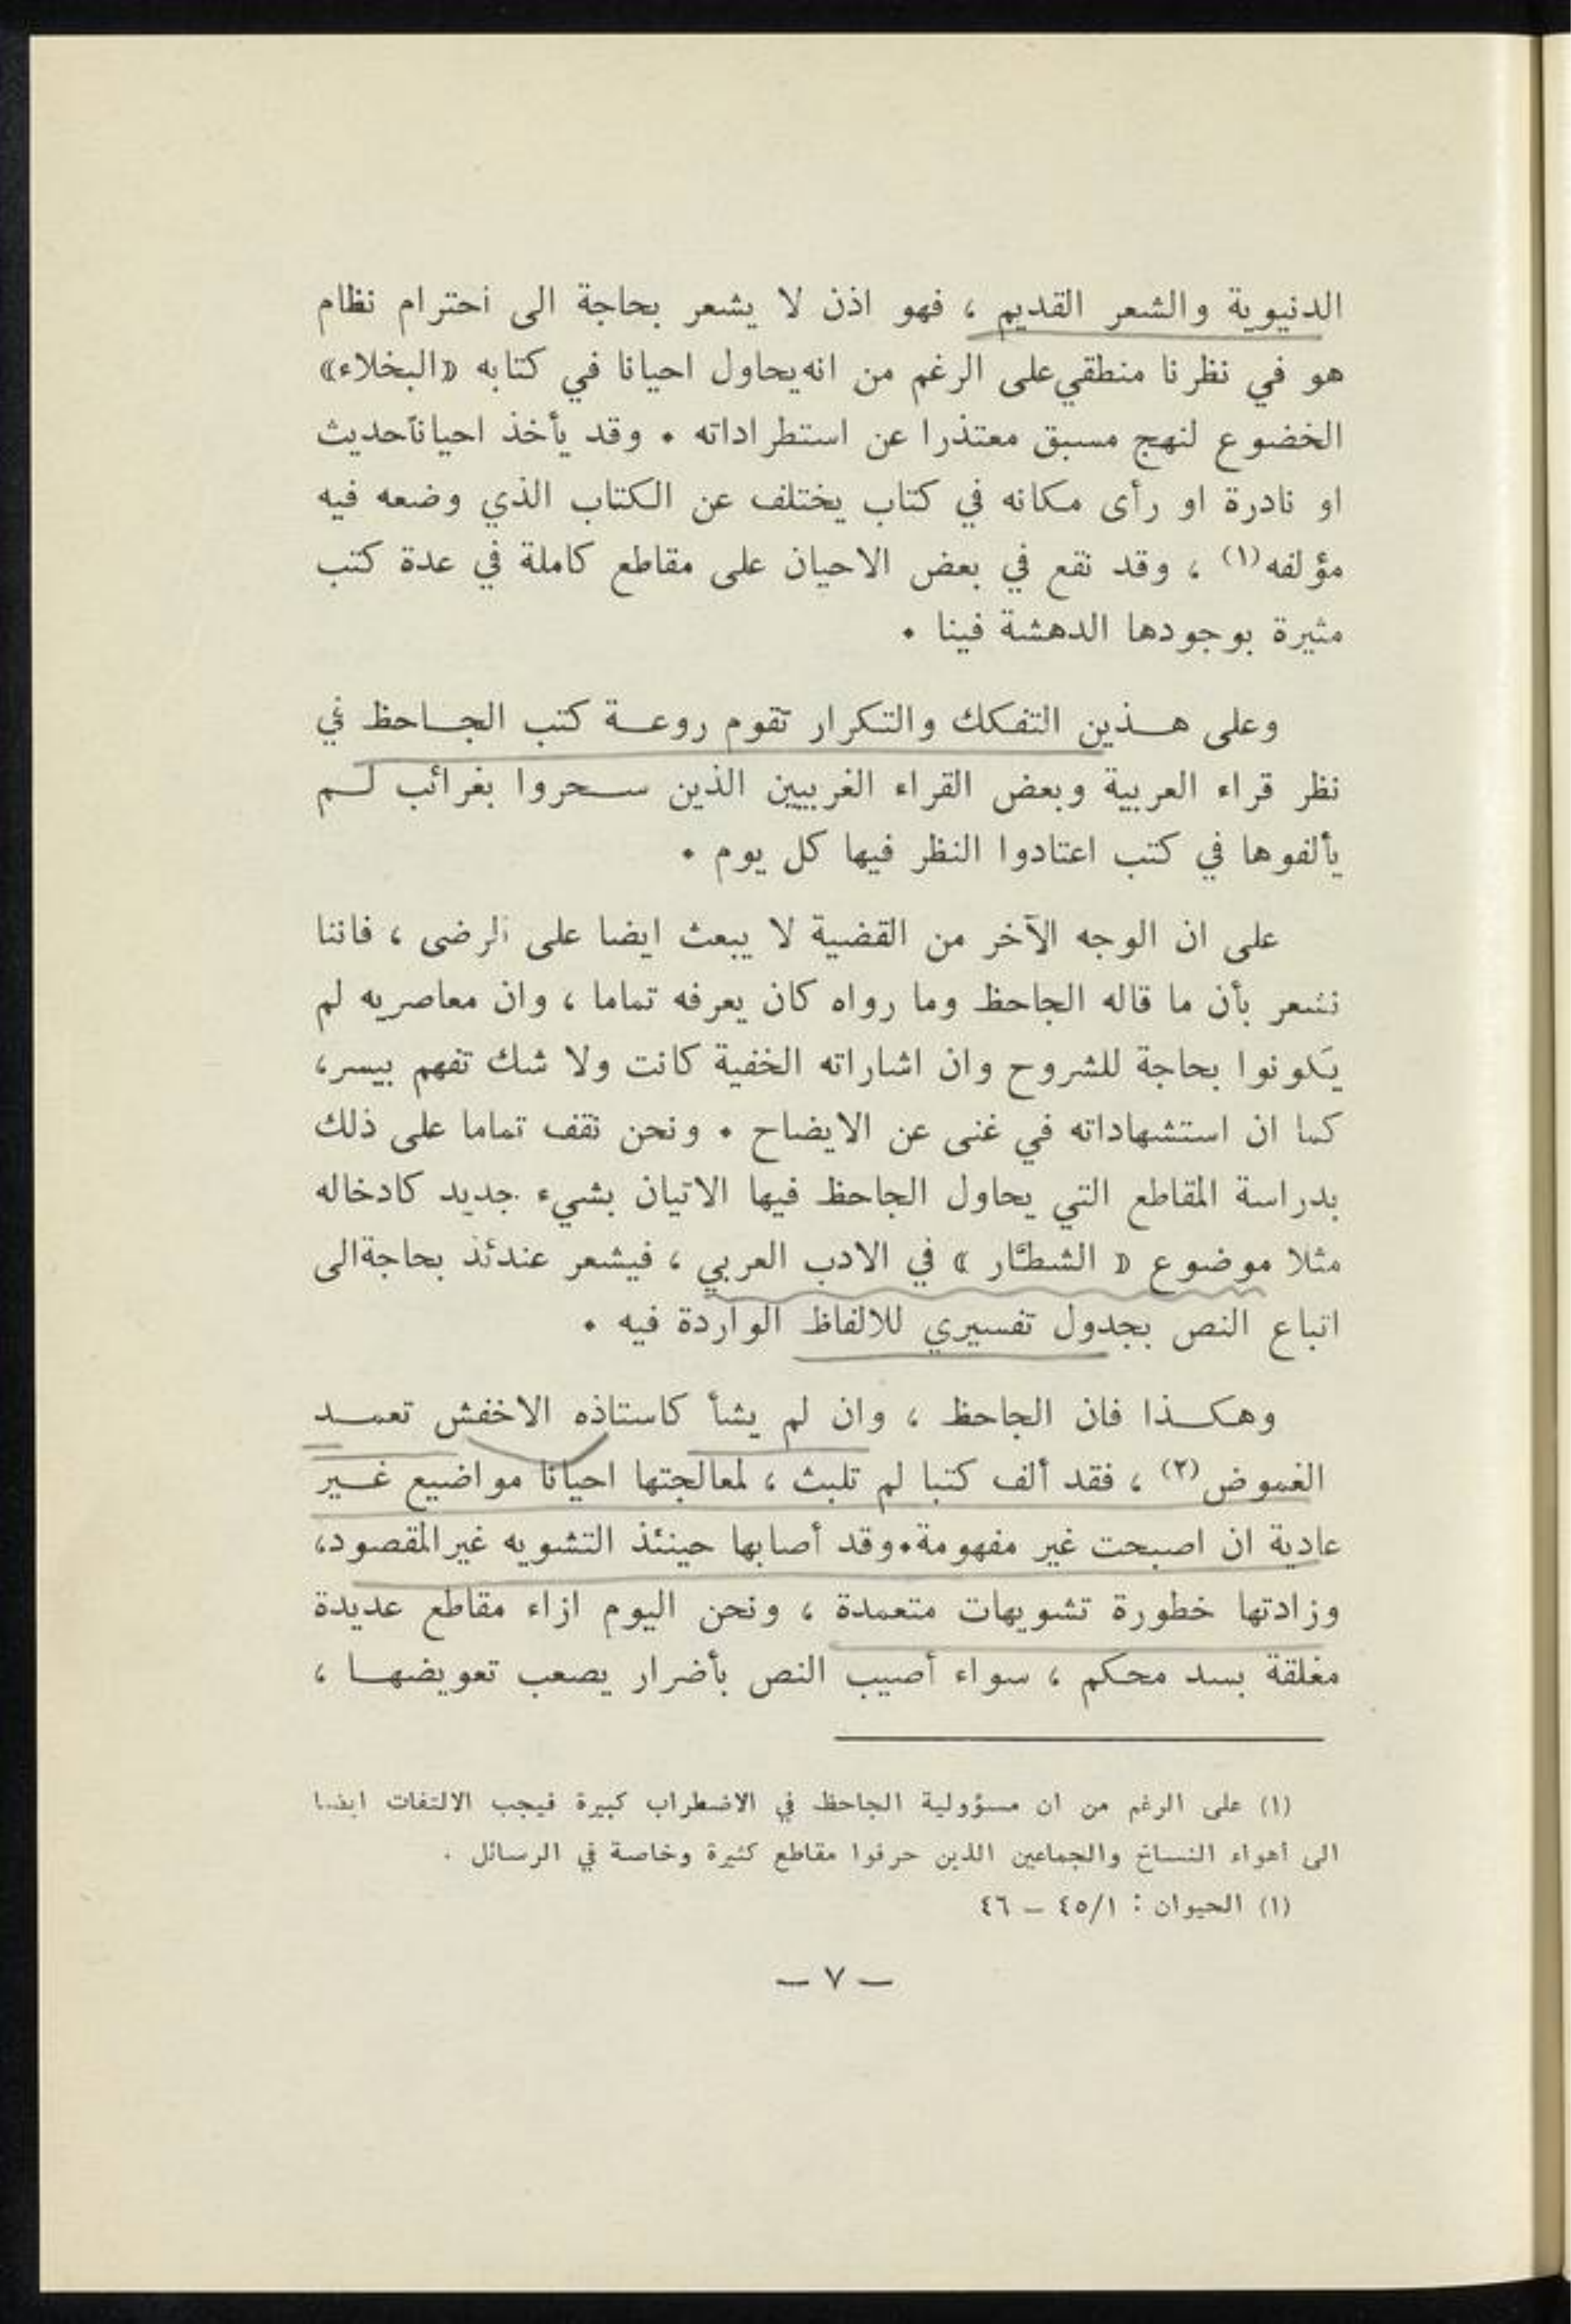 الدنيوية والشعر القديم ، فهو اذن لا يشعر بحاجة الى احترام نظام
هو في نظرنا منطقي على الرغم من انه يحاول احيانا في كتابه «البخلاء»
الخضوع لنهج مسبق معتذرا عن استطراداته . وقد يأخذ احياناً حديث
او نادرة او رأى مكانه في كتاب يختلف عن الكتاب الذي وضعه فيه
مؤلفه(١) ، وقد نقع في بعض الاحيان على مقاطع كاملة في عدة كتب
مثيرة بوجودها الدهشة فينا .
وعلى هـذين التفكك والتكرار تقوم روعـة كتب الجـاحظ في
نظر قراء العربية وبعض القراء الغربيين الذين سـحروا بغرائب لـم
يألفوها في كتب اعتادوا النظر فيها كل يوم .
على ان الوجه الآخر من القضية لا يبعث ايضا على الرضى ، فاننا
نشعر بأن ما قاله الجاحظ وما رواه كان يعرفه تماما ، وان معاصريه لم
يكونوا بحاجة للشروح وان اشاراته الخفية كانت ولا شك تفهم بيسر،
كما ان استشهاداته في غنى عن الايضاح . ونحن نقف تماما على ذلك
بدراسة المقاطع التي يحاول الجاحظ فيها الاتيان بشيء جديد كادخاله
مثلا موضوع « الشطّار » في الادب العربي ، فيشعر عندئذ بحاجة الى
اتباع النص بجدول تفسيري للالفاظ الواردة فيه .
وهكـذا فان الجاحظ ، وان لم يشأ كاستاذه الاخفش تعمـد
الغموض(٢) ، فقد ألف كتبا لم تلبث ، لمعالجتها احيانا مواضيع غـير
عادية ان اصبحت غير مفهومة.وقد أصابها حينئذ التشويه غير المقصود،
وزادتها خطورة تشويهات متعمدة ، ونحن اليوم ازاء مقاطع عديدة
مغلقة بسد محكم ، سواء أصيب النص بأضرار يصعب تعويضهـا ،
(١) على الرغم من ان مسؤولية الجاحظ في الاضطراب كبيرة فيجب الالتفات ايضا
الى أهواء النساخ والجماعين الذين حرفوا مقاطع كثيرة وخاصة في الرسائل .
(١) الحيوان : ٤٥/١ – ٤٦
– ٧ –